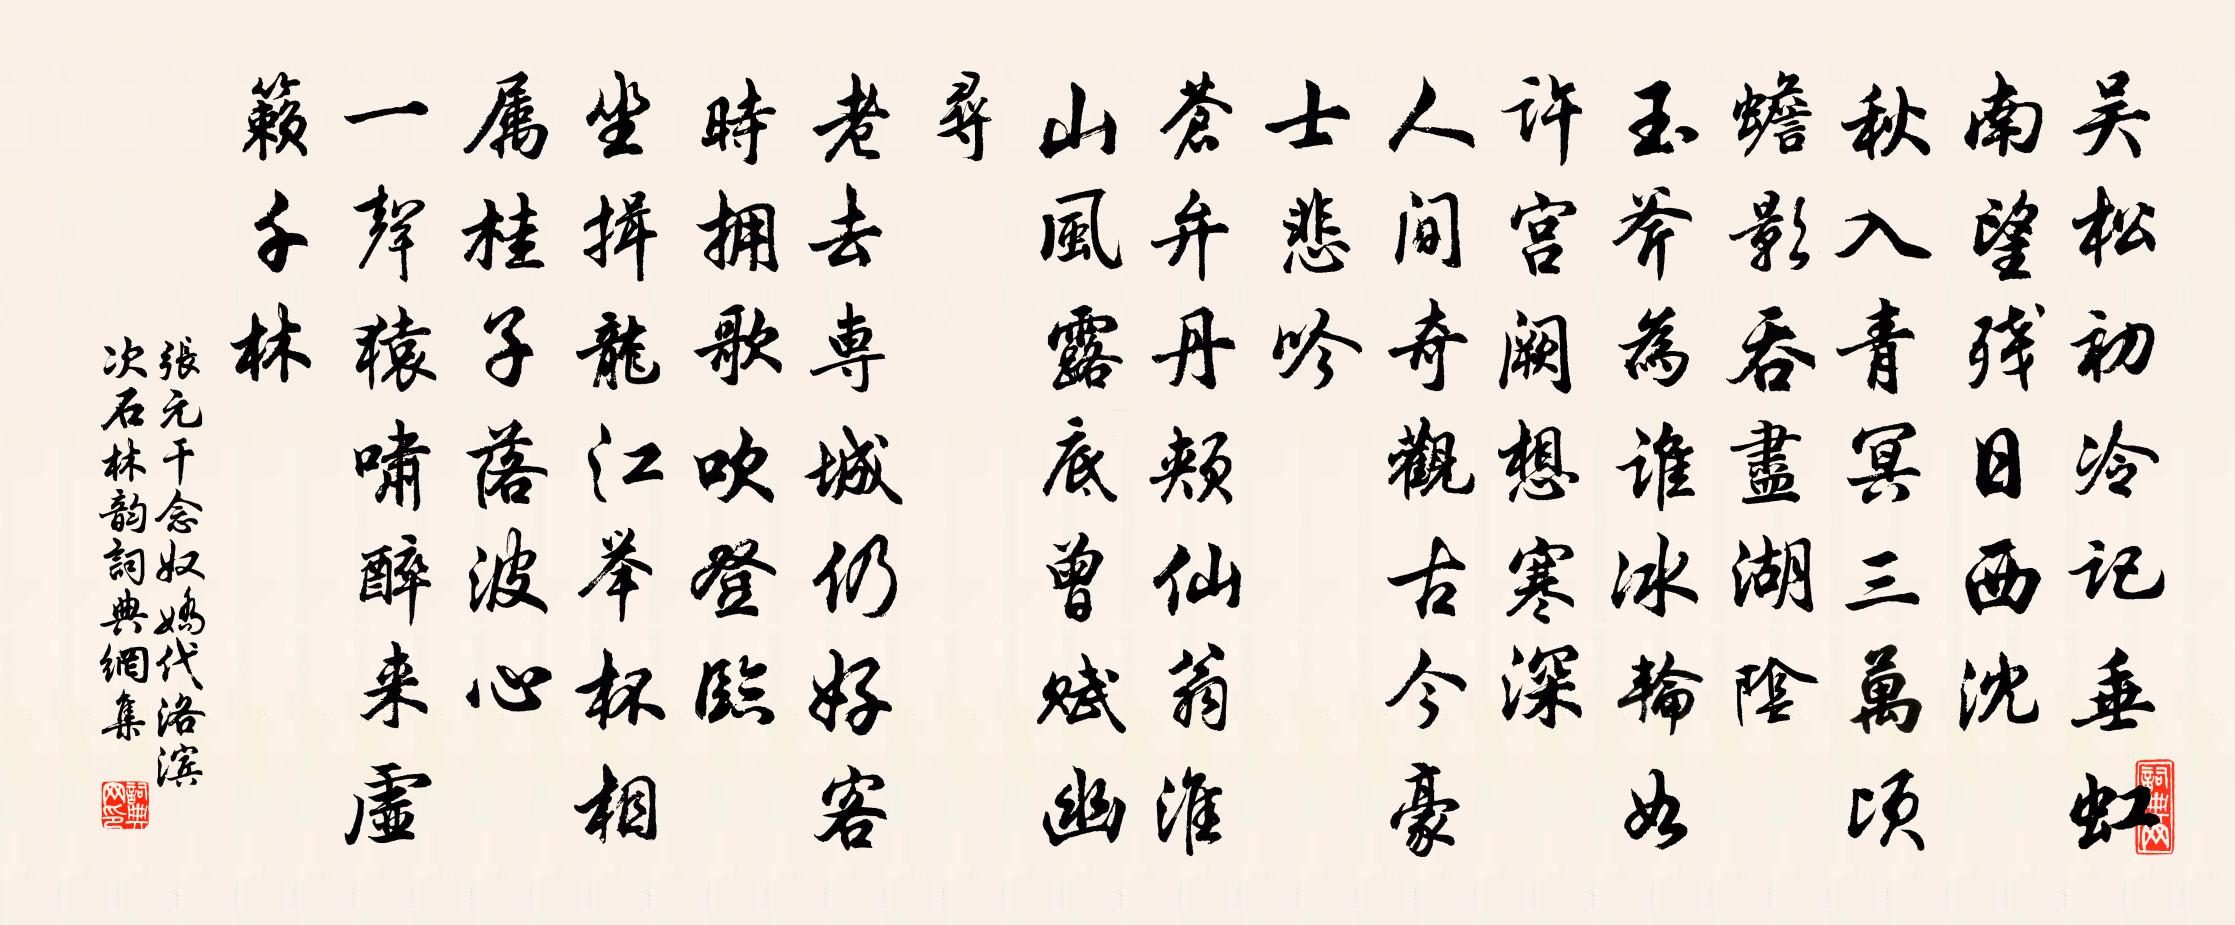 吴松初冷记垂虹
南望残日西沈
秋入青冥三萬顷
蟾影吞盡湖陰
玉斧為谁冰輪如
许宫阙想寒深
人间奇觀古今豪
士悲吟
蒼弁丹颊仙翁淮
山風露底曾赋幽
尋
老去専城仍好客
時拥歌吹登臨
坐揖龍江举杯相
属桂子落波心
一聲猿啸醉来虛
籁千林
張元干念奴嬌代洛滨
次石林韵詞典網集
詞典网
詞典网印